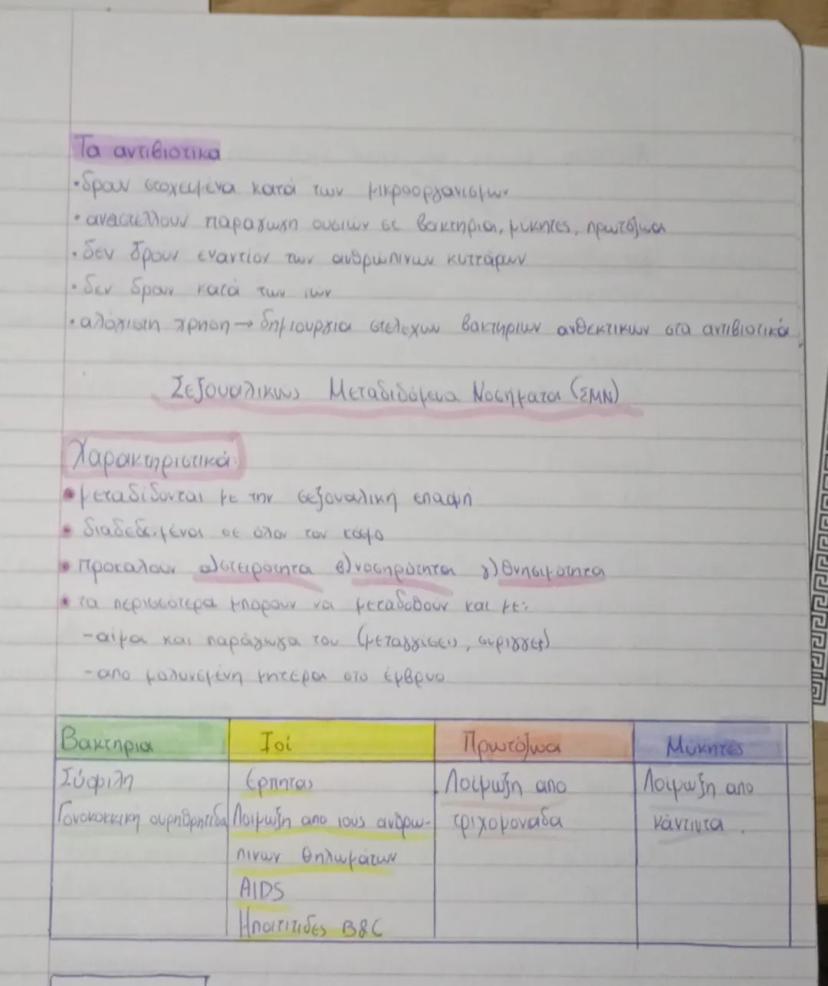 Τα αντιβιοτικά
•δρουν στοχευμένα κατά των μικροοργανισμών
•αναστέλλουν παραγωγή ουσιών σε βακτήρια, μύκητες, πρωτόζωα
•δεν δρουν εναντίον των ανθρώπινων κυττάρων
•δεν δρουν κατά των ιών
•αλόγιστη χρήση → δημιουργία στελεχών βακτηρίων ανθεκτικών στα αντιβιοτικά
Σεξουαλικώς Μεταδιδόμενα Νοσήματα (ΣΜΝ)
Χαρακτηριστικά:
• μεταδίδονται με την σεξουαλική επαφή
• διαδεδομένα σε όλον τον κόσμο
• προκαλούν α)στειρότητα β)νοσηρότητα γ)θνησιμότητα
• τα περισσότερα μπορούν να μεταδοθούν και με:
-αίμα και παράγωγα του (μεταγγίσεις, σύριγγες)
-απο μολυσμένη μητέρα στο έμβρυο
Βακτήρια Ιοί Πρωτόζωα Μύκητες
Σύφιλη Ερπητας Λοίμωξη απο Λοίμωξη απο
Γονοκοκκική ουρηθρίτιδα Λοίμωξη απο ιους ανθρω- τριχομονάδα κάντιντα
πινων θηλωμάτων
AIDS
Ηπατίτιδες B&C